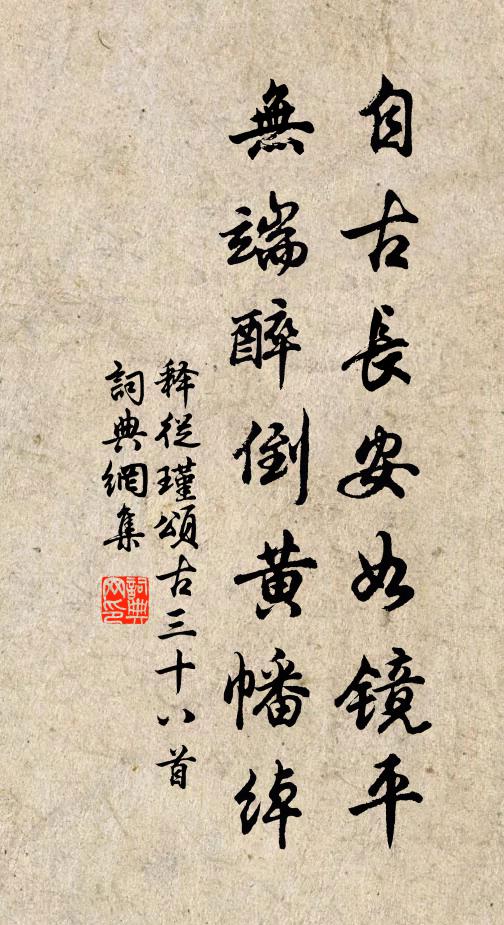 自古長安如鏡平
無端醉倒黃幡綽
釋從瑾頌古三十八首
詞典網集
詞典網印